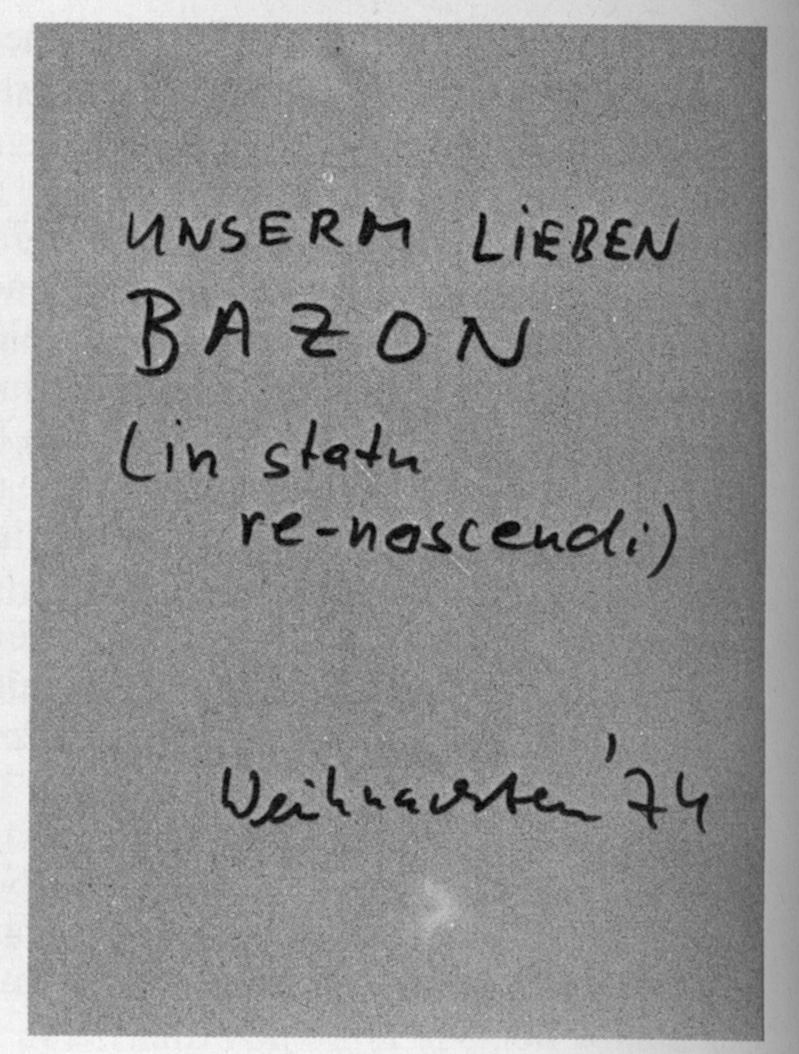 UNSERM LiEBEN
BAZON
(in statu
re-nascendi)
Weihnachten '74